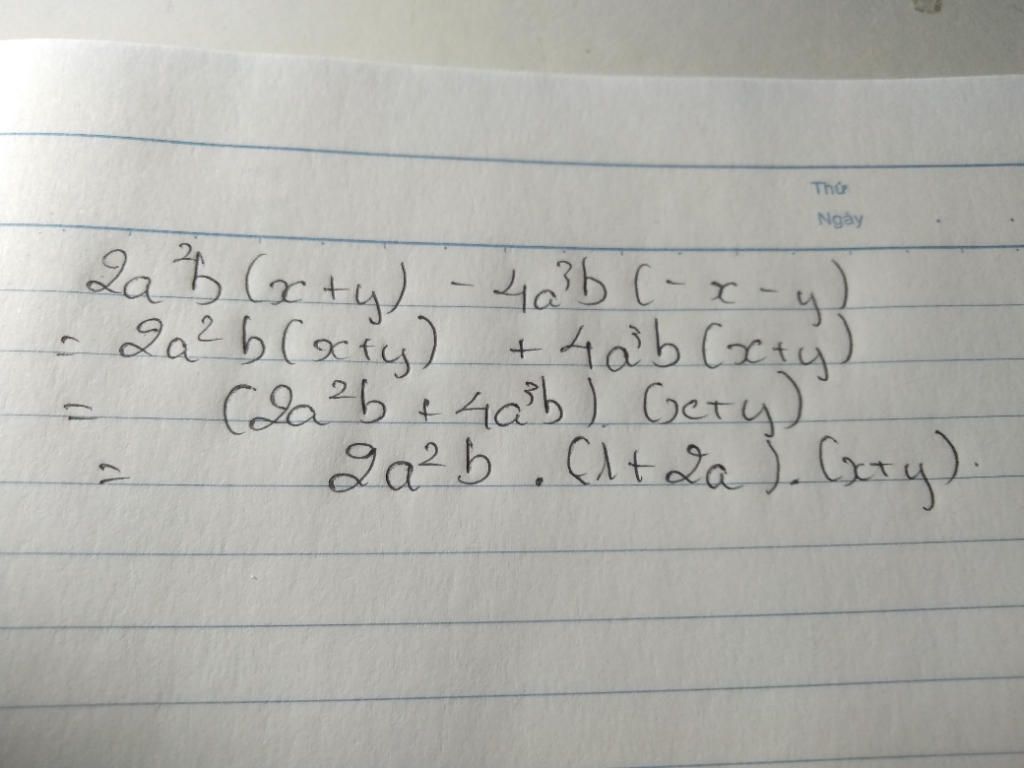 Thứ
Ngày
2a²b (x+y) - 4a³b (-x-y)
= 2a²b (x+y) + 4a³b (x+y)
= (2a²b + 4a³b). (x+y)
= 2a²b . (1+2a). (x+y).